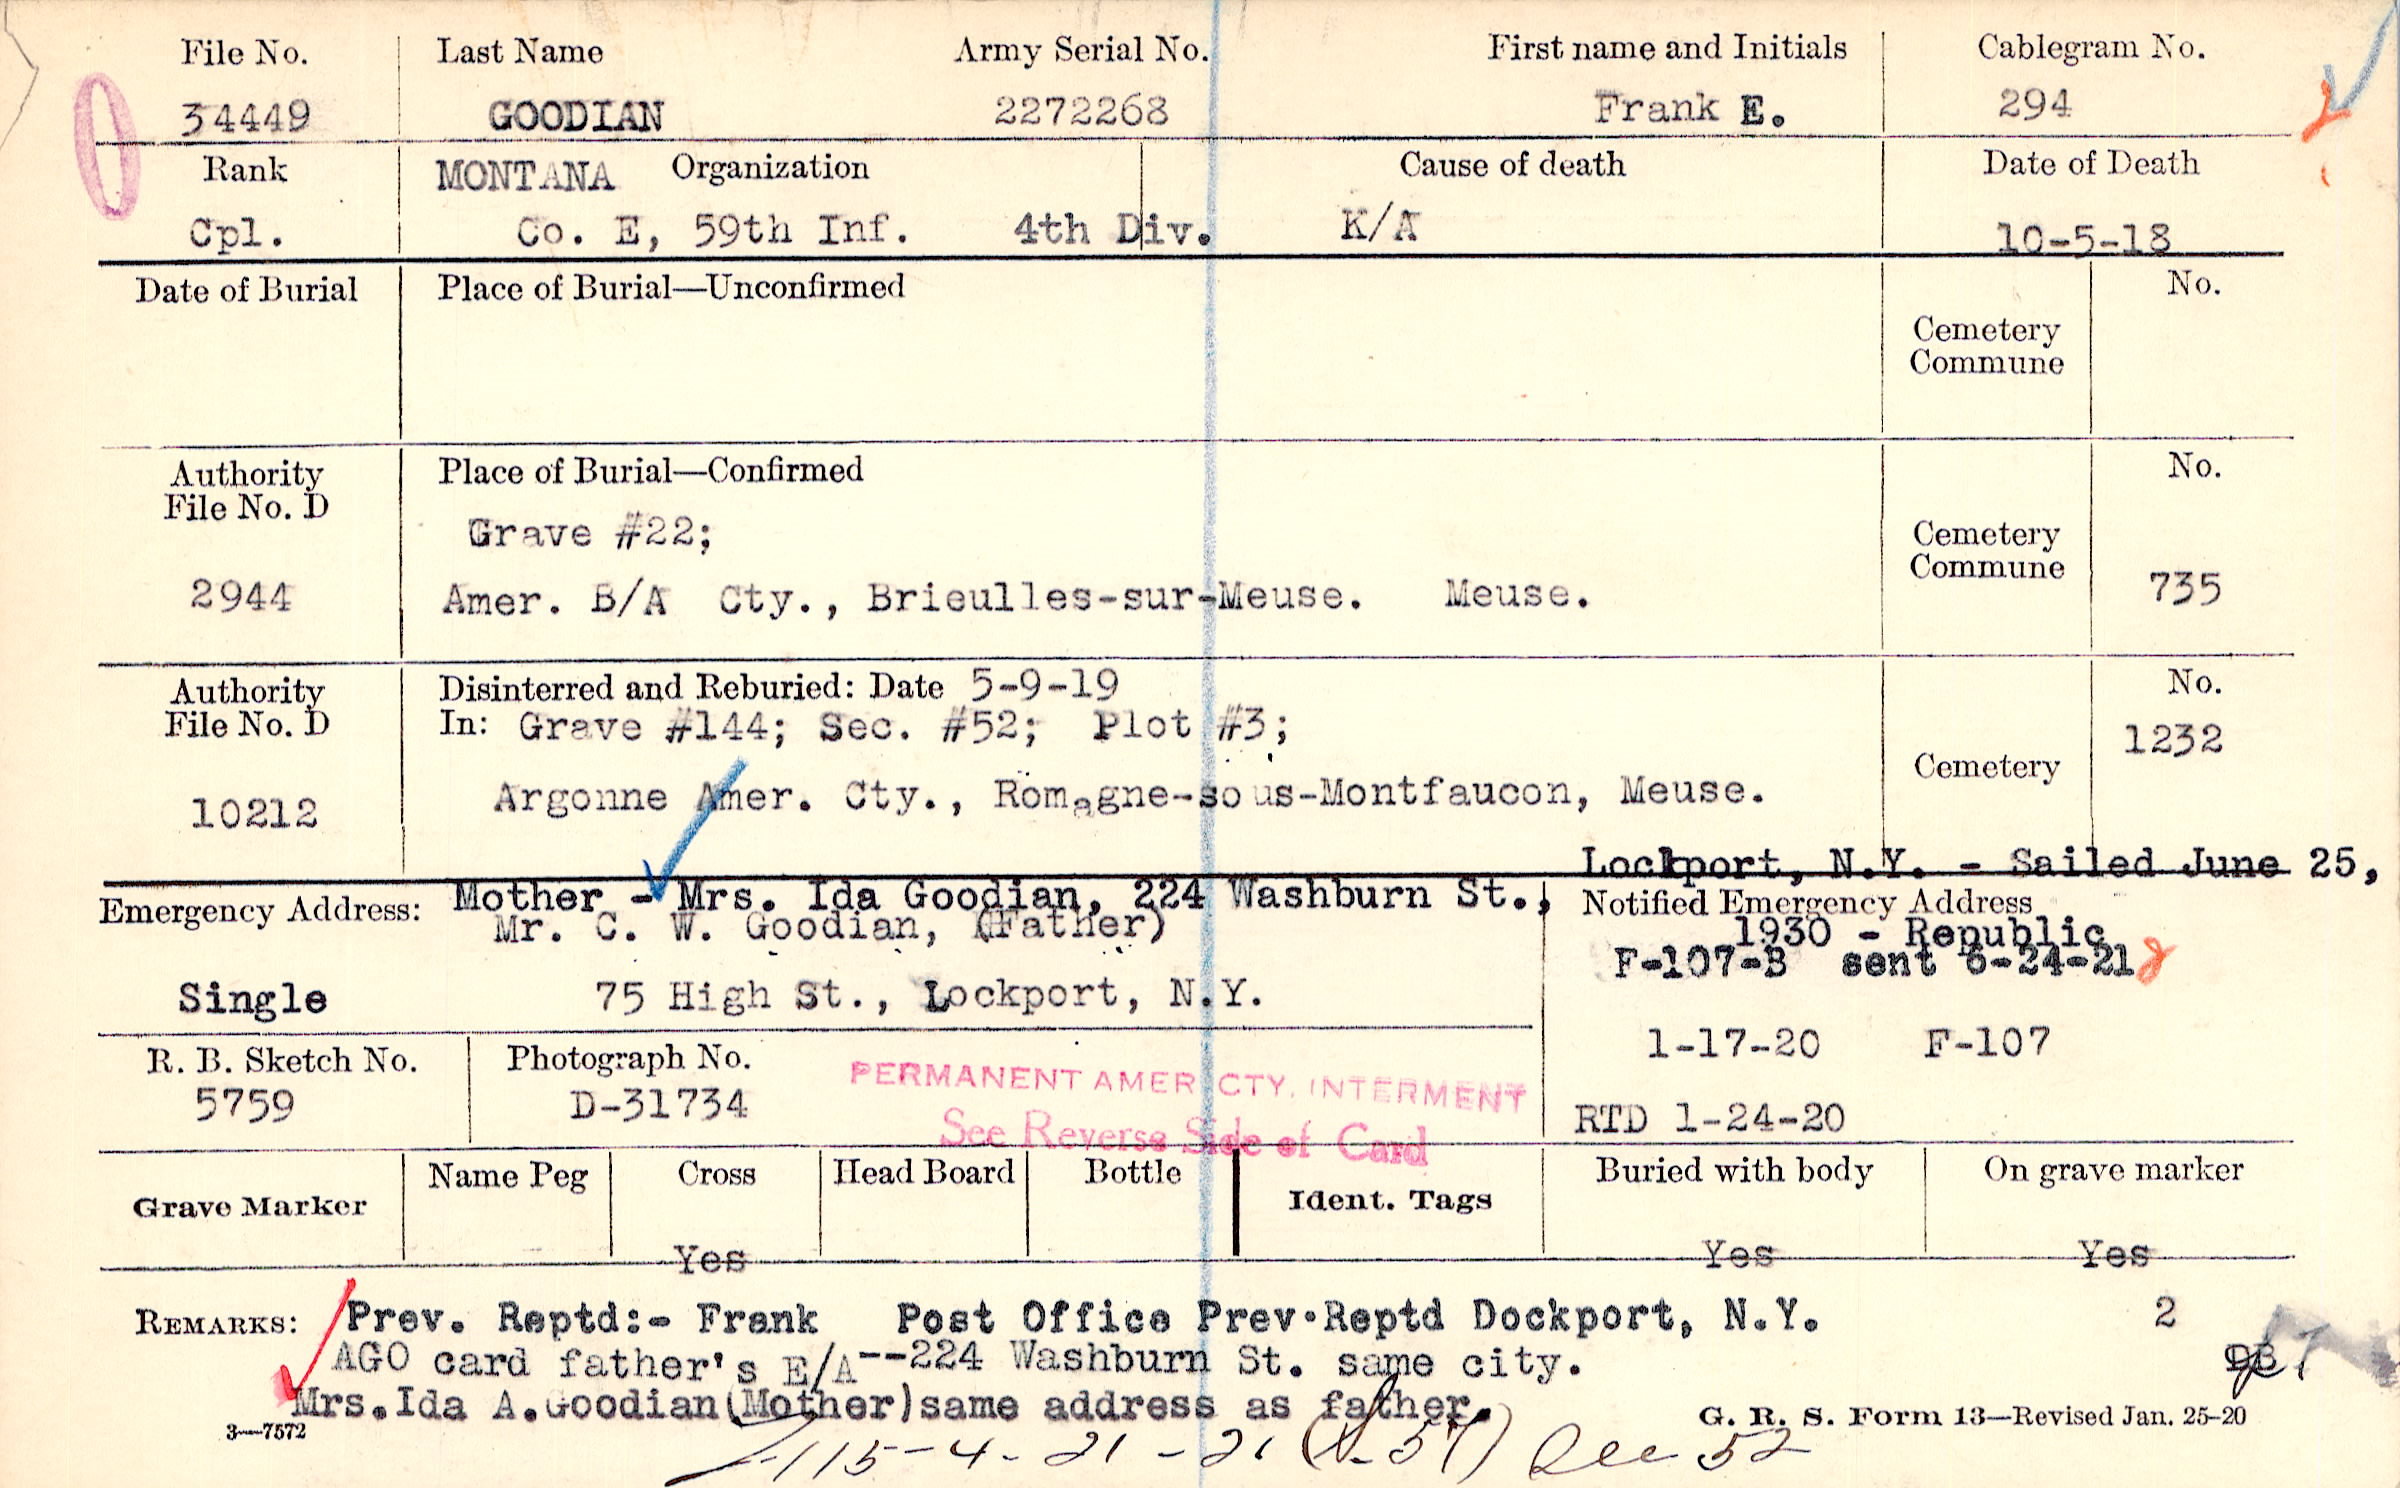 File No. Last Name Army Serial No. First name and Initials Cablegram No.
34449 GOODIAN 2272268 Frank E. 294
Rank MONTANA Organization Cause of death Date of Death
Cpl. Co. E, 59th Inf. 4th Div. K/A 10-5-18
Date of Burial Place of Burial—Unconfirmed No.
Cemetery
Commune
Authority Place of Burial—Confirmed No.
File No. D
Grave #22;
Cemetery
Commune
2944 Amer. B/A Cty., Brieulles-sur-Meuse. Meuse. 735
Authority Disinterred and Reburied: Date 5-9-19 No.
File No. D In: Grave #144; Sec. #52; Plot #3; 1232
Cemetery
10212 Argonne Amer. Cty., Romagne-sous-Montfaucon, Meuse.
Lockport, N.Y. - Sailed June 25,
Emergency Address: Mother - Mrs. Ida Goodian, 224 Washburn St., Notified Emergency Address
Mr. C. W. Goodian, (Father) 1930 - Republic
F-107-B sent 6-24-21
Single 75 High St., Lockport, N.Y.
1-17-20 F-107
R. B. Sketch No. Photograph No. PERMANENT AMER CTY. INTERMENT
5759 D-31734 See Reverse Side of Card RTD 1-24-20
Grave Marker Name Peg Cross Head Board Bottle Ident. Tags Buried with body On grave marker
Yes Yes Yes
REMARKS: Prev. Reptd:- Frank Post Office Prev.Reptd Dockport, N.Y. 2
AGO card father's E/A--224 Washburn St. same city.
Mrs.Ida A.Goodian(Mother)same address as father.
3—7572 G. R. S. Form 13—Revised Jan. 25-20
115-4-21-21 Dec 52